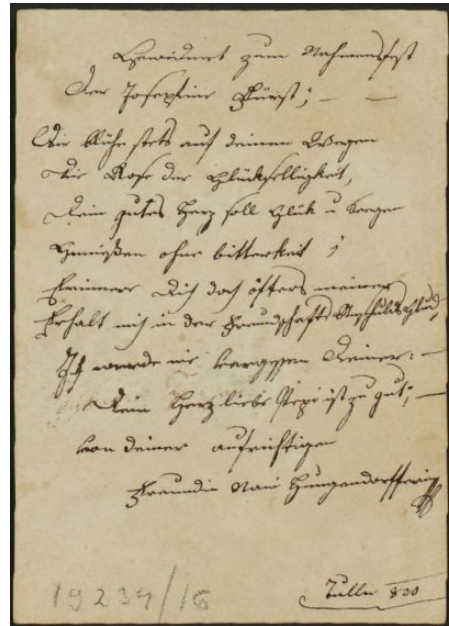 Gewidmet zum Nahmensfest
der Josephine Fürst; — —
Dir blühe stets auf deinen Wegen
die Rose der Glückselligkeit,
Dein gutes Herz soll Glük u Seegen
Genüßen ohne bitterkeit ;
Erinnere Dich doch öfters meiner
Erhalt mich in der Freundschafts
Ich werde nie vergessen Deiner: —
Dein Herz liebe Pepi ist zu gut; —
von deiner aufrichtigen
Freundin Nani Hungendorfferin
19234/16
Tulln 800